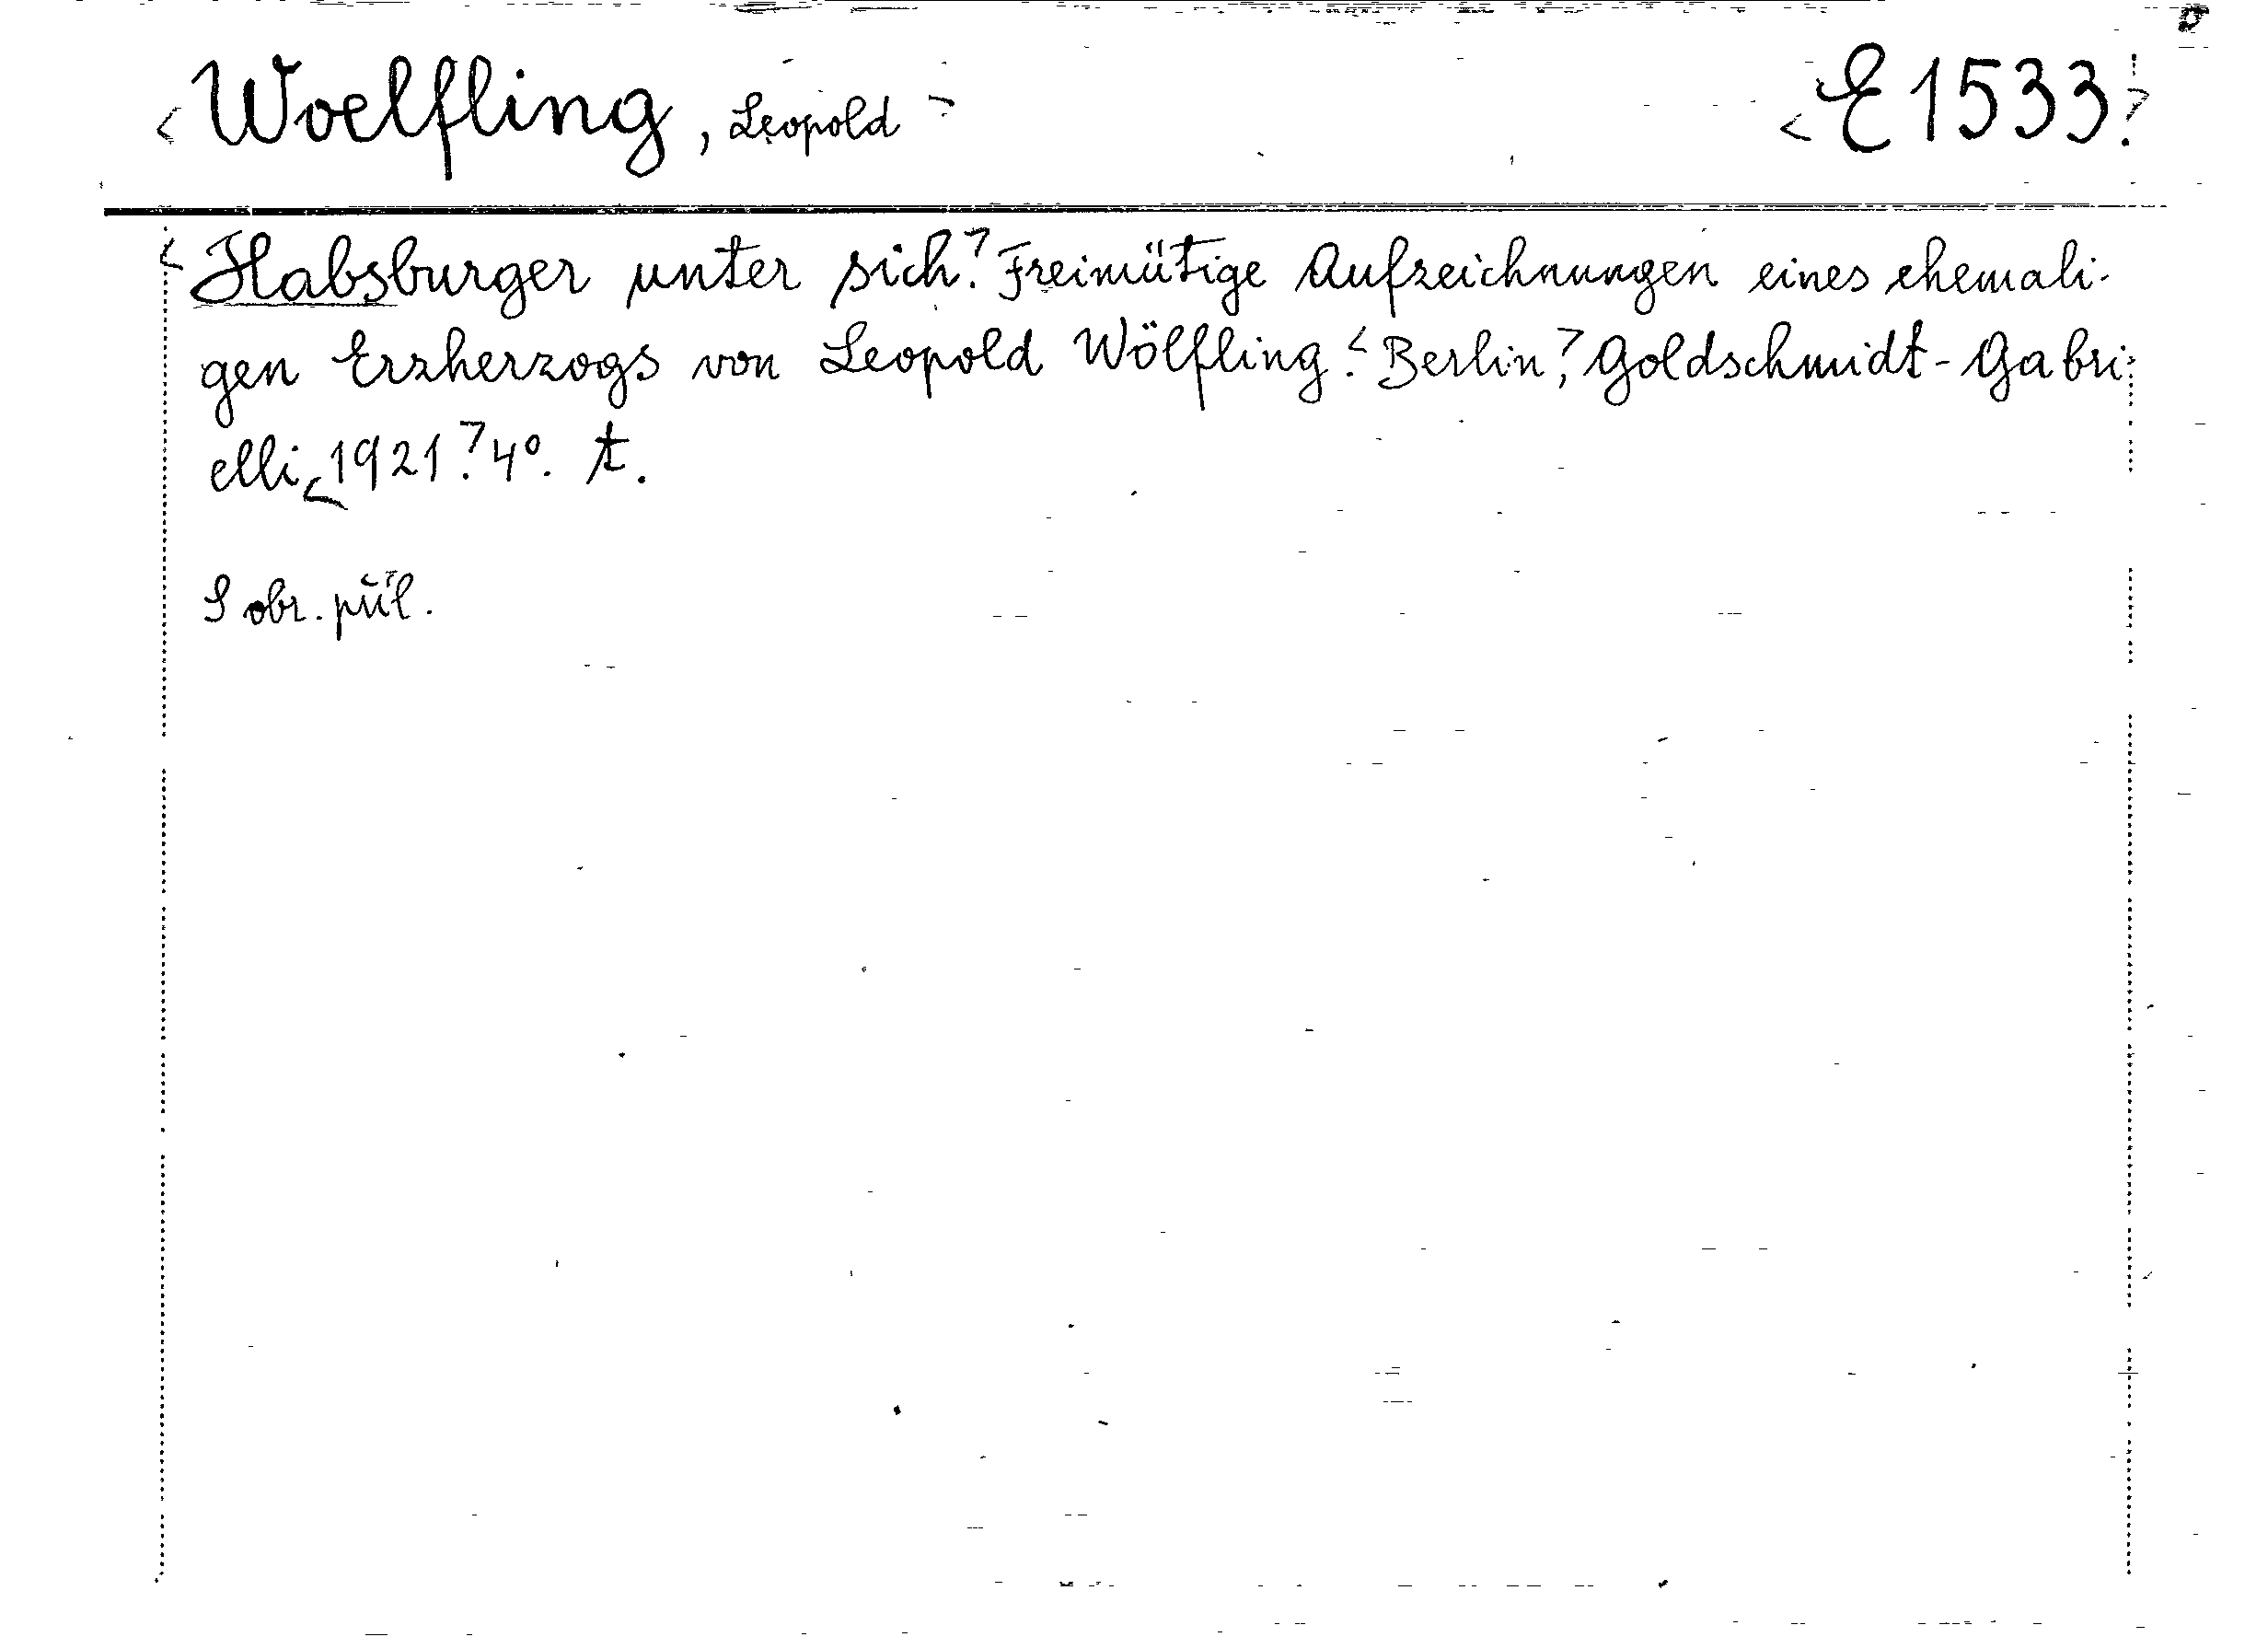 Woelfling, Leopold E 1533.
Habsburger unter sich. Freimütige Aufzeichnungen eines ehemali-
gen Erzherzogs von Leopold Wölfling. Berlin, Goldschmidt-Gabri-
elli, 1921. 4°. t.
S obr. příl.